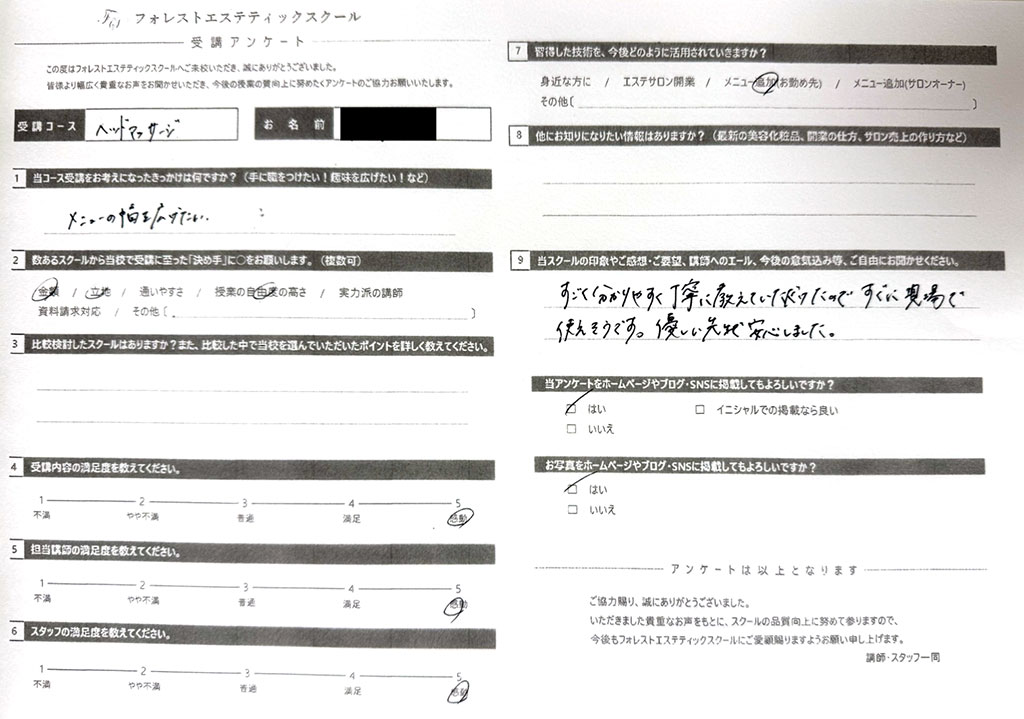 フォレストエステティックスクール
受講アンケート
この度はフォレストエステティックスクールへご来校いただき、誠にありがとうございました。
皆様より幅広く貴重なお声をお聞かせいただき、今後の授業の質向上に努めたくアンケートのご協力お願いいたします。
受講コース ヘッドマッサージ お名前
1 当コース受講をお考えになったきっかけは何ですか？（手に職をつけたい！趣味を広げたい！など）
メニューの幅を広げたい.
2 数あるスクールから当校で受講に至った「決め手」に○をお願いします。（複数可）
金額 / 立地 / 通いやすさ / 授業の自由度の高さ / 実力派の講師
資料請求対応 / その他〔 〕
3 比較検討したスクールはありますか？また、比較した中で当校を選んでいただいたポイントを詳しく教えてください。
4 受講内容の満足度を教えてください。
1 2 3 4 5
不満 やや不満 普通 満足 感動
5 担当講師の満足度を教えてください。
1 2 3 4 5
不満 やや不満 普通 満足 感動
6 スタッフの満足度を教えてください。
1 2 3 4 5
不満 やや不満 普通 満足 感動
7 習得した技術を、今後どのように活用されていきますか？
身近な方に / エステサロン開業 / メニュー追加(お勤め先) / メニュー追加(サロンオーナー)
その他〔 〕
8 他にお知りになりたい情報はありますか？（最新の美容化粧品、開業の仕方、サロン売上の作り方など）
9 当スクールの印象やご感想・ご要望、講師へのエール、今後の意気込み等、ご自由にお聞かせください。
すごく分かりやすく丁寧に教えていただけたのですぐに現場で
使えそうです。優しい先生で安心しました。
当アンケートをホームページやブログ・SNSに掲載してもよろしいですか？
□ はい □ イニシャルでの掲載なら良い
□ いいえ
お写真をホームページやブログ・SNSに掲載してもよろしいですか？
□ はい
□ いいえ
アンケートは以上となります
ご協力賜り、誠にありがとうございました。
いただきました貴重なお声をもとに、スクールの品質向上に努めて参りますので、
今後もフォレストエステティックスクールにご愛顧賜りますようお願い申し上げます。
講師・スタッフ一同